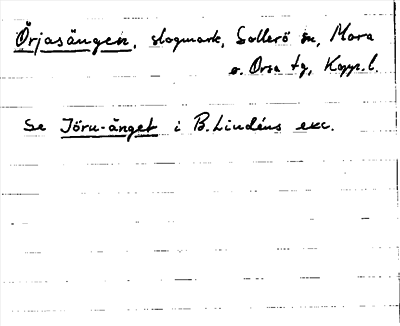 Örjasängen, slogmark, Sollerö sn, Mora
o. Orsa tg, Kopp. l.
Se Jöru-änget i B. Lindéns exc.